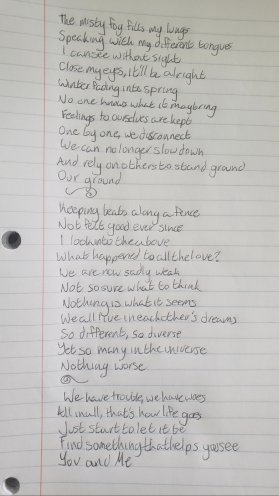 The misty fog fills my lungs
Speaking with my different tongues
I can see without sight
Close my eyes, it'll be alright
Winter fading into spring
No one knows what it may bring
Feelings to ourselves are kept
One by one, we disconnect
We can no longer slow down
And rely on others to stand ground
Our ground
Keeping beats along a fence
Not felt good ever since
I look into the above
What happened to all the love?
We are now sadly weak
Not so sure what to think
Nothing is what it seems
We all live in each other's dreams
So different, so diverse
Yet so many in the universe
Nothing worse
We have trouble, we have woes
All in all, that's how life goes
Just start to let it be
Find something that helps you see
You and Me